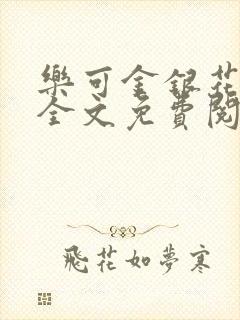 樂可金銀花
全文免費閱
飛花如夢寒